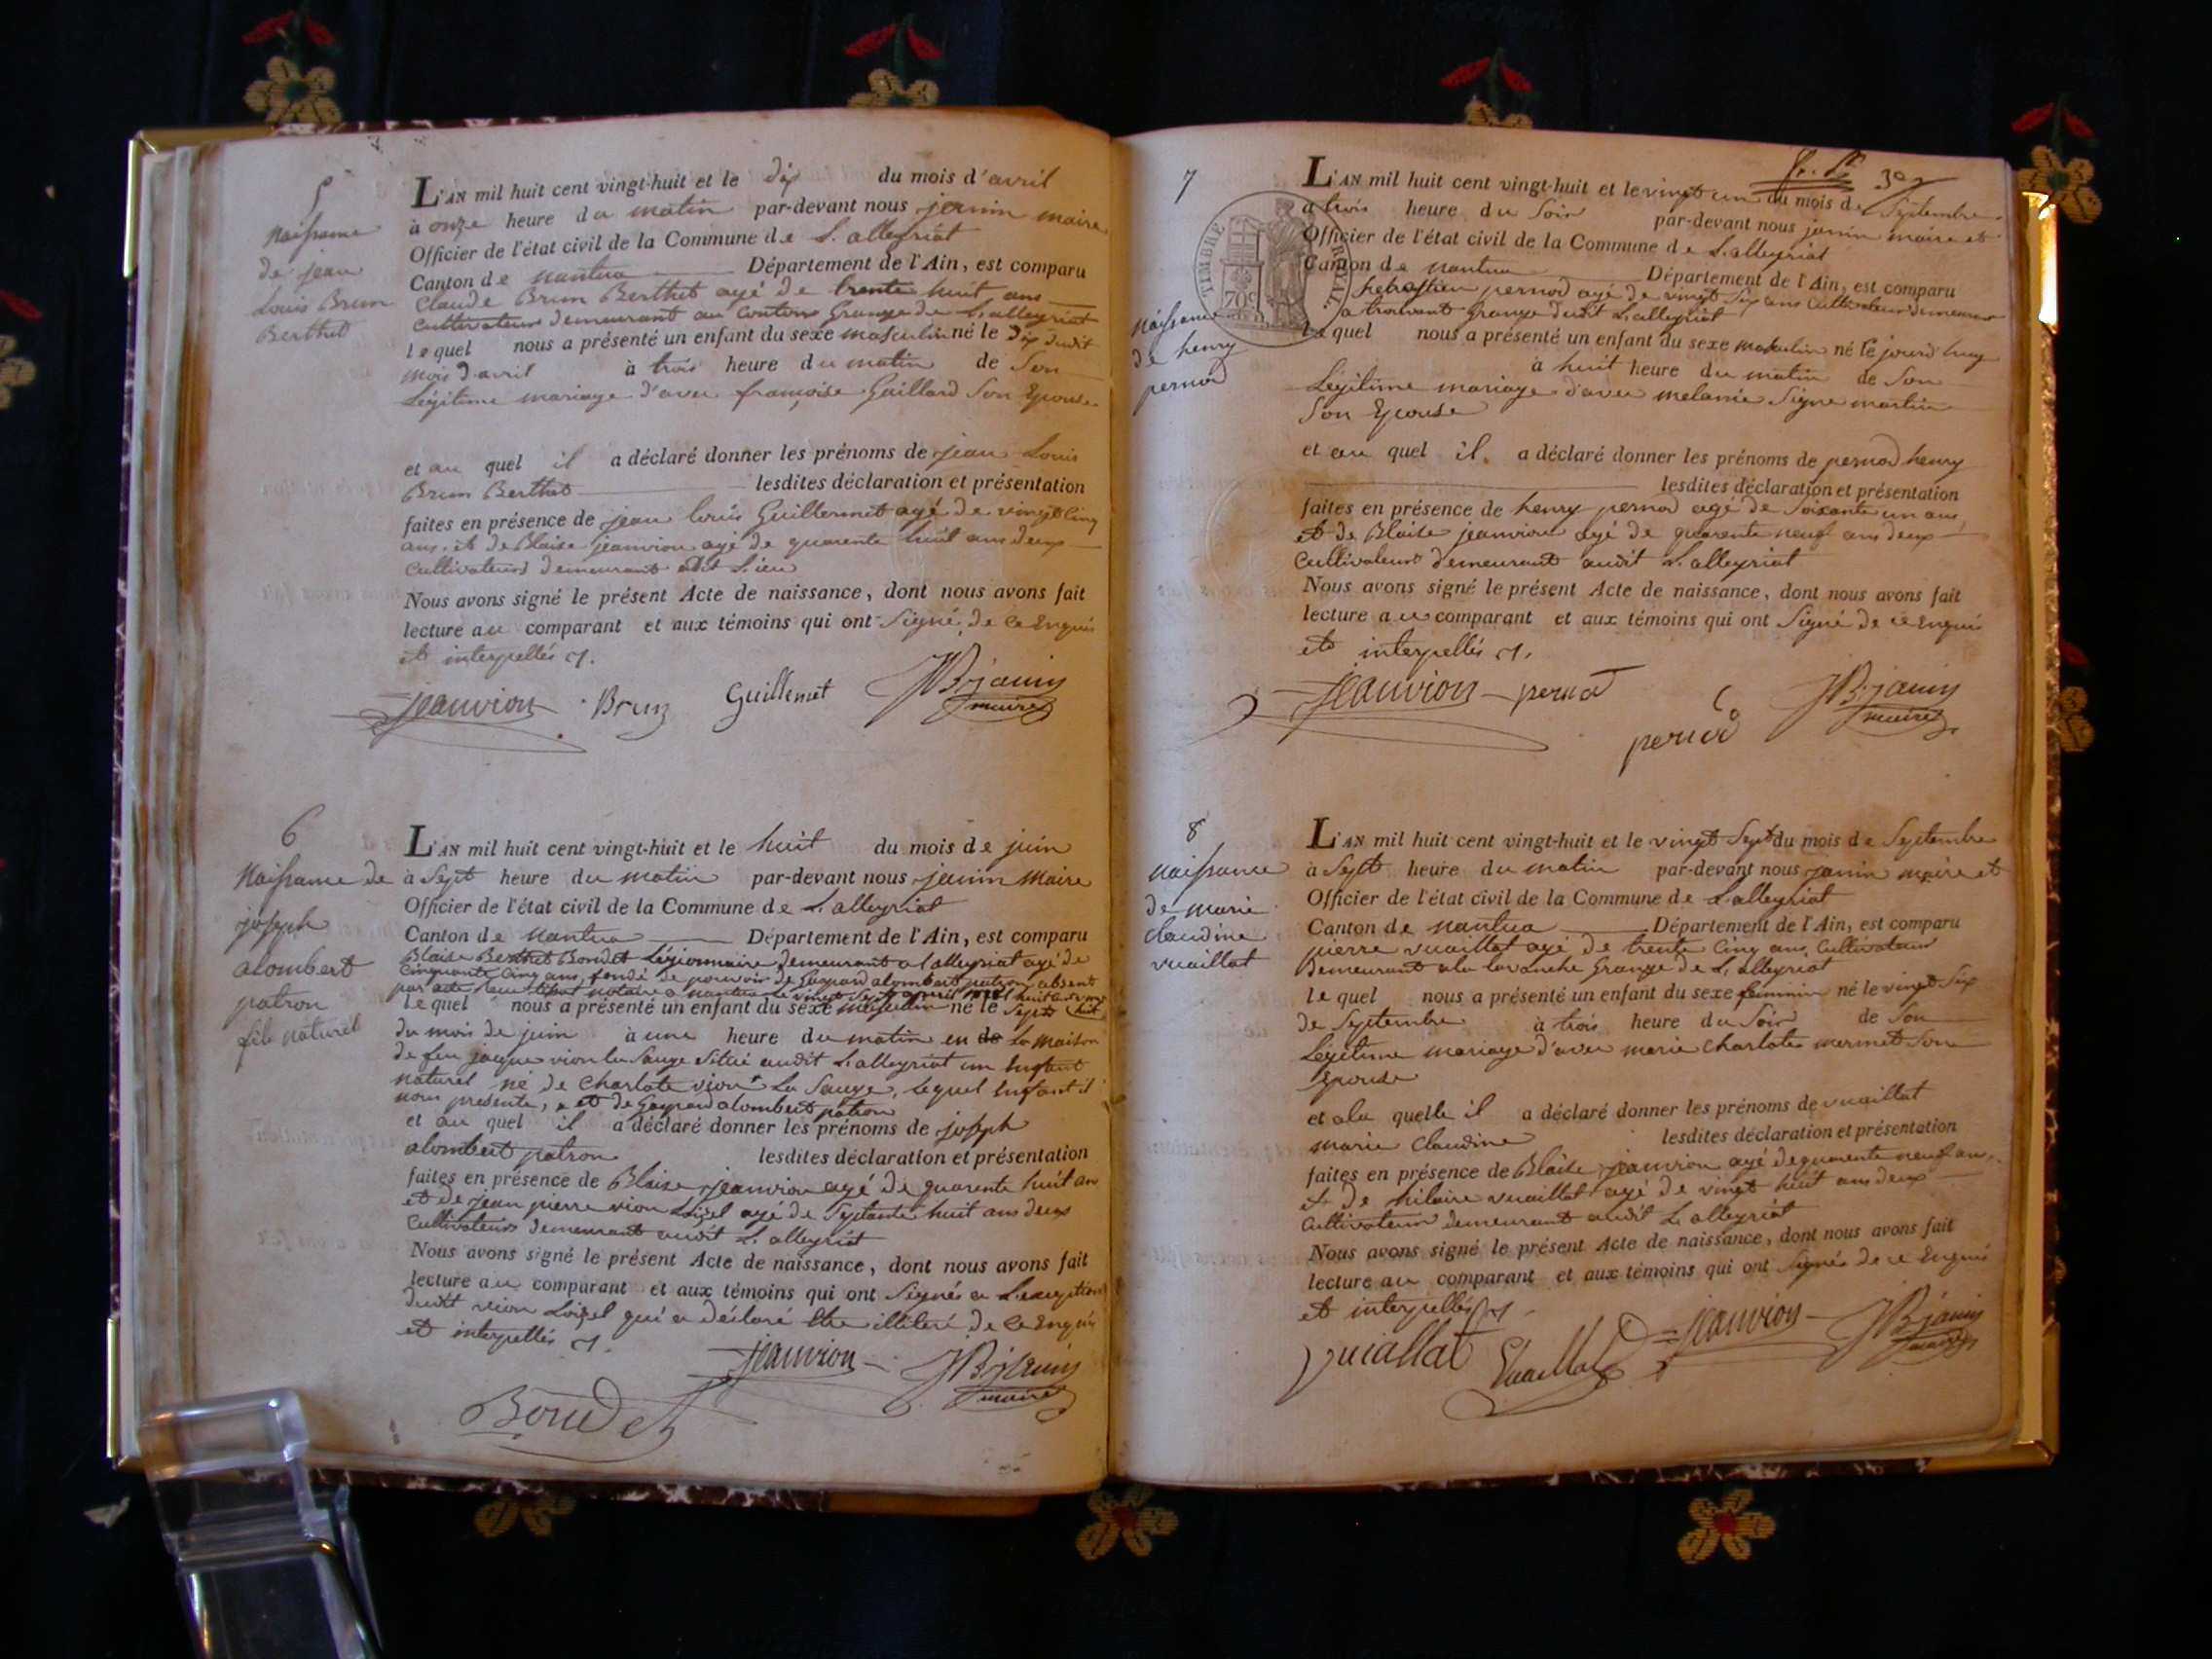 5
Naissance
de jean
Louis Brun
Berthet
L'AN mil huit cent vingt-huit et le dix du mois d'avril
à onze heure du matin par-devant nous janin maire
Officier de l'état civil de la Commune de L. alleyriat
Canton de nantua Département de l'Ain, est comparu
Claude Brun Berthet agé de trente huit ans
cultivateur demeurant au Grange de L. alleyriat
lequel nous a présenté un enfant du sexe masculin né le dix dudit
mois d'avril à trois heure du matin de Son
Légitime mariage d'avec françoise Guillard Son Epouse
et au quel il a déclaré donner les prénoms de jean Louis
Brun Berthet lesdites déclaration et présentation
faites en présence de jean louis Guillermet agé de vingt Cinq
ans et de Blaise jeanvion agé de quarente huit ans deux
Cultivateurs demeurant Lieu
Nous avons signé le présent Acte de naissance, dont nous avons fait
lecture au comparant et aux témoins qui ont Signé de ce Enquis
et interpellés
jeanvion Brun Guillemet JB janin
maire
6
Naissance de
joseph
alombert
patron
fils naturel
L'AN mil huit cent vingt-huit et le huit du mois de juin
à Sept heure du matin par-devant nous janin Maire
Officier de l'état civil de la Commune de L. alleyriat
Canton de nantua Département de l'Ain, est comparu
Blaise Berthet Bondet Légionnaire demeurant a l'alleyriat agé de
Cinquante Cinq ans, fondé de pouvoir de Gaspard alombert patron absent
par acte notaire a nantua Le vingt Sept avril huit cent
lequel nous a présenté un enfant du sexe masculin né le Sept
du mois de juin à une heure du matin en la maison
de feu jacque vion la Sauge Situé audit L. alleyriat un Enfant
naturel né de Charlote vion La Sauge, Lequel Enfant il
nous présente, et de Gaspard alombert patron
et au quel il a déclaré donner les prénoms de joseph
alombert patron lesdites déclaration et présentation
faites en présence de Blaise jeanvion agé de quarente huit an
et de jean pierre vion Loizel agé de Septante huit ans deux
Cultivateurs demeurant audit L. alleyriat
Nous avons signé le présent Acte de naissance, dont nous avons fait
lecture au comparant et aux témoins qui ont Signés a L'exception
dudit vion Loizel qui a déclaré être illiteré de ce Enquis
et interpellés
jeanvion JB janin
maire
Bondet
7
TIMBRE ROYAL
70c
Naissance
de henry
pernod
L'AN mil huit cent vingt-huit et le vingt un du mois de Septembre
à trois heure du Soir par-devant nous janin maire et
Officier de l'état civil de la Commune de L. alleyriat
Canton de nantua Département de l'Ain, est comparu
Sebastien pernod agé de vingt Six ans Cultivateur demeurant
Grange dudit L. alleyriat
lequel nous a présenté un enfant du sexe masculin né le jourd'huy
à huit heure du matin de Son
Légitime mariage d'avec melanie Signe martin
Son Epouse
et au quel il a déclaré donner les prénoms de pernod henry
lesdites déclaration et présentation
faites en présence de henry pernod agé de Soixante un ans
et de Blaise jeanvion agé de quarente neuf ans deux
Cultivateurs demeurant audit L. alleyriat
Nous avons signé le présent Acte de naissance, dont nous avons fait
lecture au comparant et aux témoins qui ont Signé de ce Enquis
et interpellés
jeanvion pernod JB janin
maire
pernod
8
naissance
de marie
claudine
vuaillat
L'AN mil huit cent vingt-huit et le vingt Sept du mois de Septembre
à Sept heure du matin par-devant nous janin maire et
Officier de l'état civil de la Commune de L. alleyriat
Canton de nantua Département de l'Ain, est comparu
pierre vuaillat agé de trente Cinq ans, Cultivateur
demeurant a la Lavanche Grange de L. alleyriat
lequel nous a présenté un enfant du sexe feminin né le vingt Six
de Septembre à trois heure du Soir de Son
Légitime mariage d'avec marie Charlote mermet Son
Epouse
et a la quelle il a déclaré donner les prénoms de vuaillat
marie Claudine lesdites déclaration et présentation
faites en présence de Blaise jeanvion agé de quarente neuf an
et de hilaire vuaillat agé de vingt huit ans deux
Cultivateurs demeurant audit L. alleyriat
Nous avons signé le présent Acte de naissance, dont nous avons fait
lecture au comparant et aux témoins qui ont Signés de ce Enquis
et interpellés
vuiallat vuaillat jeanvion JB janin
maire